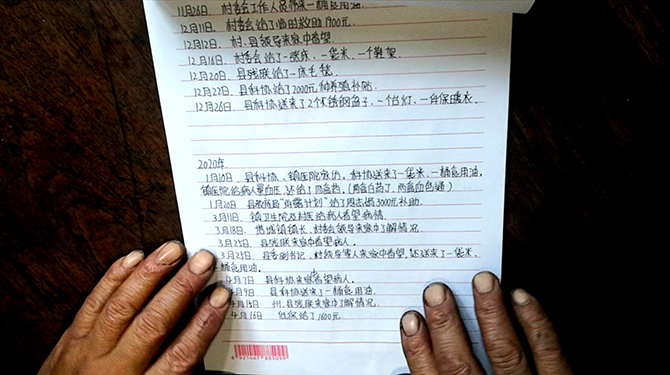 11月26日 村委会工作人员带来一桶食用油。
12月11日. 村委会给了临时救助1900元.
12月12日. 村、县领导来家中看望.
12月16日. 村委会给了一张床、一袋米、一个鞋架.
12月20日. 县残联给了一床毛毯.
12月22日. 县科协给了2000元种养殖补贴.
12月26日. 县科协送来了2个不锈钢盆子、一个台灯、一身保暖衣.
2020年
1月10日. 县科协、镇医院家访. 科协送来了一袋米、一桶食用油.
镇医院给病人量血压, 还给了四盒药.
1月20日. 县教育局"雨露计划"给了 3000元补助.
3月11日. 镇卫生院及村医给病人看望病情.
3月18日. 镇镇长, 村委会领导来家中了解情况.
3月25日. 县残联来家中看望病人.
3月29日. 县委副书记、村领导等人来家中看望, 还送来了一袋米、
一桶食用油.
4月7日 县科协来家中看望病人.
4月9日 县科协送来了一桶食用油.
4月15日 州、县残联来家中了解情况.
4月16日 低保给了1600元.